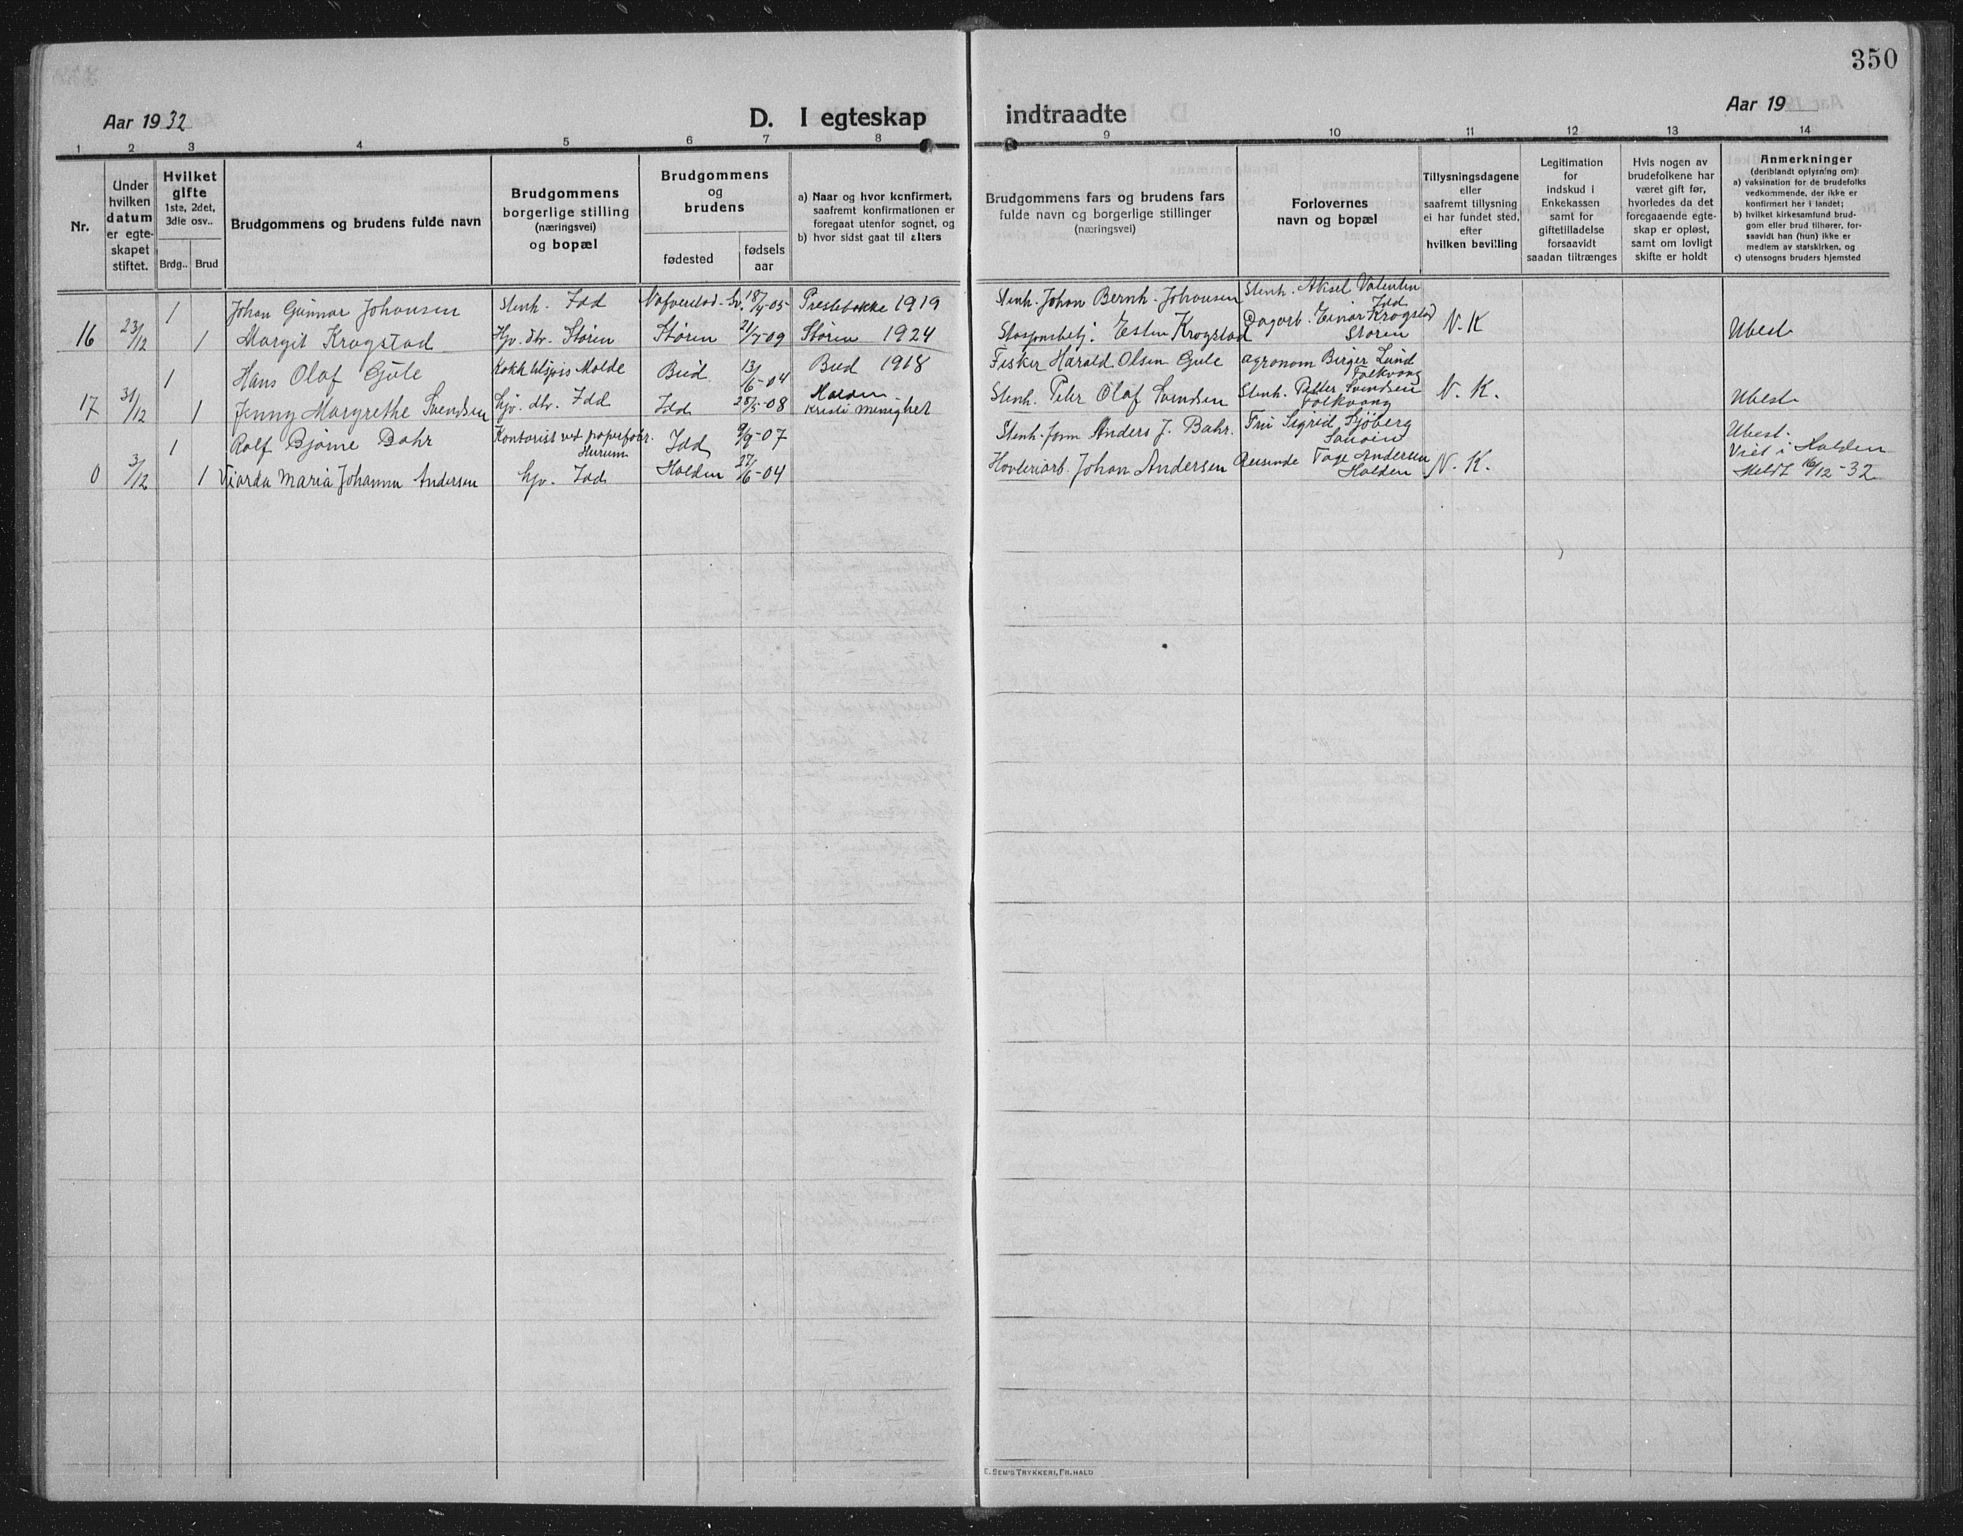 350
Aar 1932
D. I egteskap
indtraadte
Aar 19
1 2 3 4 5 6 7 8 9 10 11 12 13 14
Nr.
Under
hvilken
datum
er egte-
skapet
stiftet.
Hvilket
gifte
1ste, 2det,
3die osv..
Brdg.. Brud
Brudgommens og brudens fulde navn
Brudgommens
borgerlige stilling
(næringsvei)
og bopæl
Brudgommens
og
brudens
fødested
fødsels
aar
a) Naar og hvor konfirmert,
saafremt konfirmationen er
foregaat utenfor sognet, og
b) hvor sidst gaat til alters
Brudgommens fars og brudens fars
fulde navn og borgerlige stillinger
(næringsvei)
Forlovernes
navn og bopæl
Tillysningsdagene
eller
saafremt tillysning
ei har fundet sted,
efter
hvilken bevilling
Legitimation
for
indskud i
Enkekassen
samt for
giftetilladelse
forsaavidt
saadan tiltrænges
Hvis nogen av
brudefolkene har
været gift før,
hvorledes da det
foregaaende egte-
skap er opløst,
samt om lovligt
skifte er holdt
Anmerkninger
(deriblandt oplysning om):
a) vaksination for de brudefolks
vedkommende, der ikke er
konfirmert her i landet;
b) hvilket kirkesamfund brud-
gom eller brud tilhører, for-
saavidt han (hun) ikke er
medlem av statskirken, og
c) utensogns bruders hjemsted
1 Johan Gunnar Johansen Stenh. Idd 18/4-05 Prestebakke 1919 Stenh. Johan Bernh. Johansen Stenh. Aksel Valentin
Idd
16 23/12 1 Margit Krogstad Hjv. dtr. Støren Støren 21/5-09 Støren 1924 Esten Krogstad Dagarb. Einar Krogstad N. K Ubesl.
Støren
1 Hans Olaf Gule Molde Bud 13/6-04 Bud 1918 Fisker Harald Olsen Gule agronom Birger Lund
Folkvang
17 31/12 1 Jenny Margrethe Svendsen hjv. dtr. Idd Idd 28/5-08 Halden Kristi Menighet Stenh. Peter Olaf Svendsen Stenh. Petter Svendsen N. K. Ubesl.
Folkvang
1 Rolf Bjarne Bahr Kontorist ved papirfabr. Hurum Idd 9/9-07 Stenh. form Anders J. Bahr. Fru Sigrid Sjöberg Ubesl.
Viet i Halden
0 3/12 1 Maria Johanna Andersen hjv. Idd Halden 27/6-04 Johan Andersen Reisende Tage Andersen N. K. Meldt 16/12-32
Halden
E. SEM'S TRYKKERI, FR.HALD